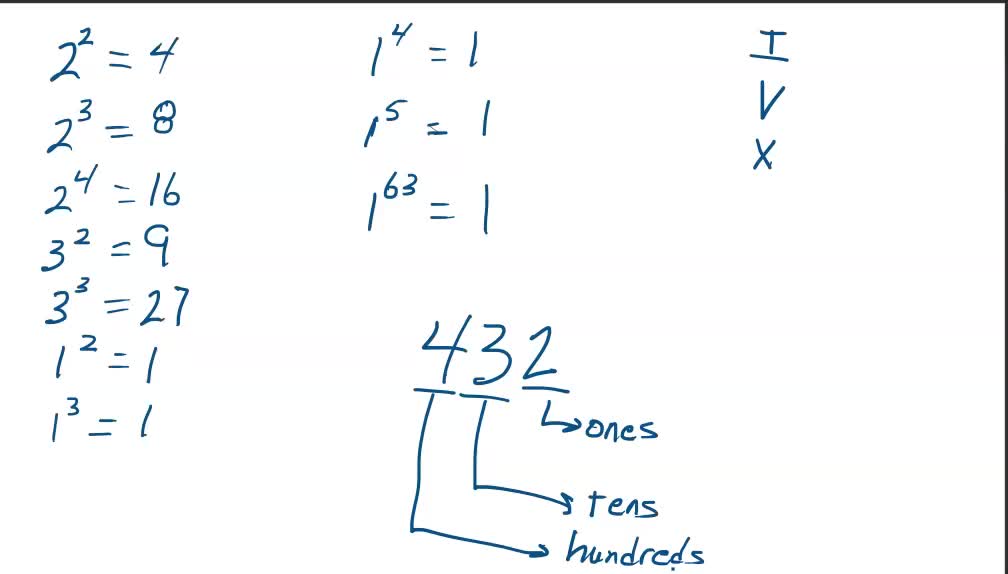 2² = 4
2³ = 8
2⁴ = 16
3² = 9
3³ = 27
1² = 1
1³ = 1
1⁴ = 1
1⁵ = 1
1⁶³ = 1
I
V
X
432
ones
tens
hundreds